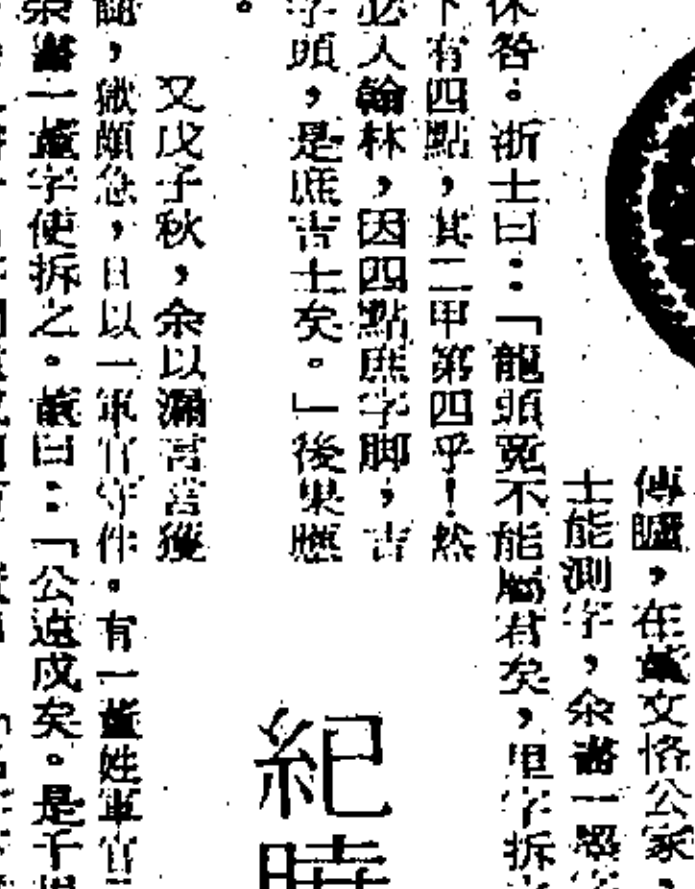 傳臚，在董文恪公家，
士能測字，余書一墨字
休咎。浙士曰：「龍頭冕不能屬君矣，里字拆
下有四點，其二甲第四乎！然
必入翰林，因四點庶字脚，吉
字頭，是庶吉士矣。」後果應
。
紀曉
又戊子秋，余以漏言獲
譴，獄頗急，日以一軍官守伴。有一董姓軍官
余書一董字使拆之。董曰：「公遠戍矣。是千里